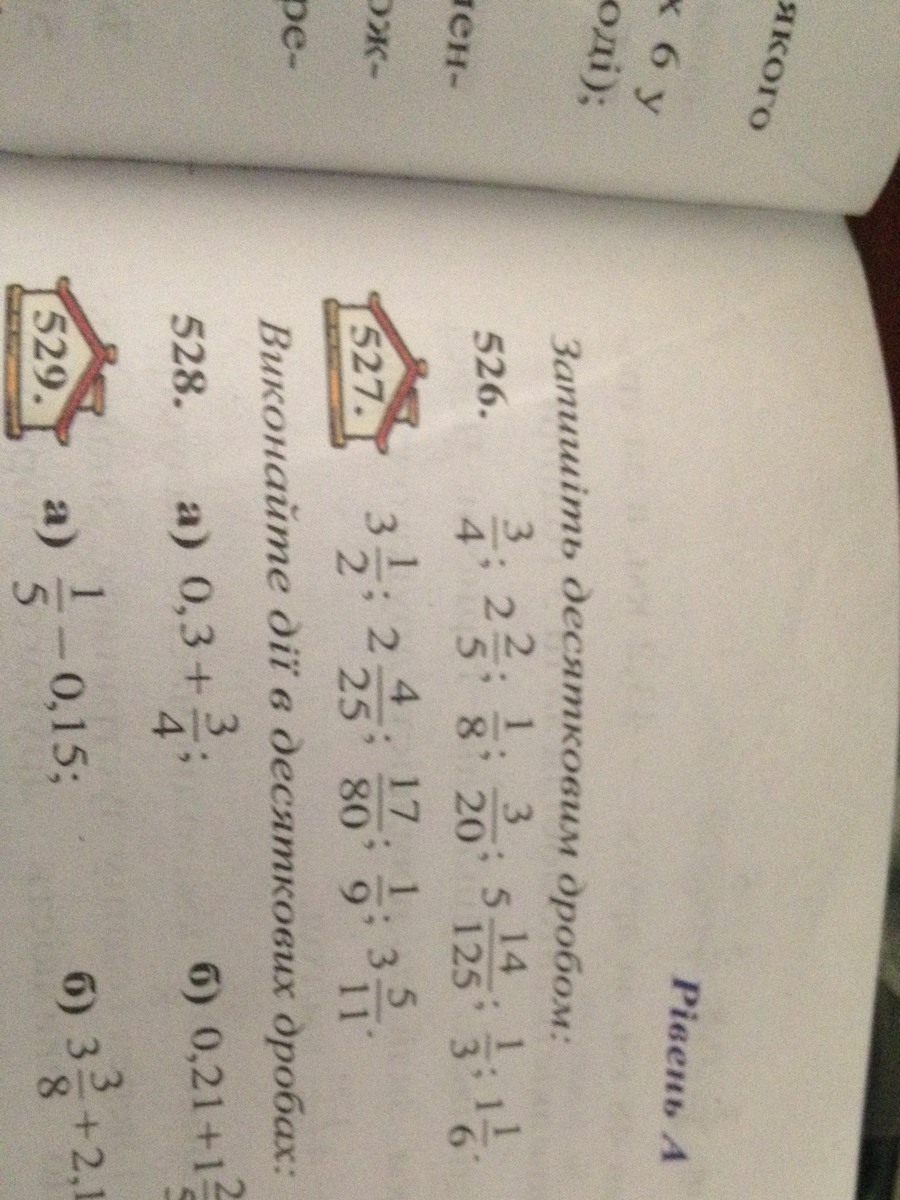 якого
х 6 у
оді);
лен-
ож-
ре-
Рівень А
Запишіть десятковим дробом:
526. 3/4; 2 2/5; 1/8; 3/20; 5 14/125; 1/3; 1 1/6.
527. 3 1/2; 2 4/25; 17/80; 1/9; 3 5/11.
Виконайте дії в десяткових дробах:
528. а) 0,3 + 3/4; б) 0,21 + 1 2/5
529. а) 1/5 − 0,15; б) 3 3/8 + 2,1